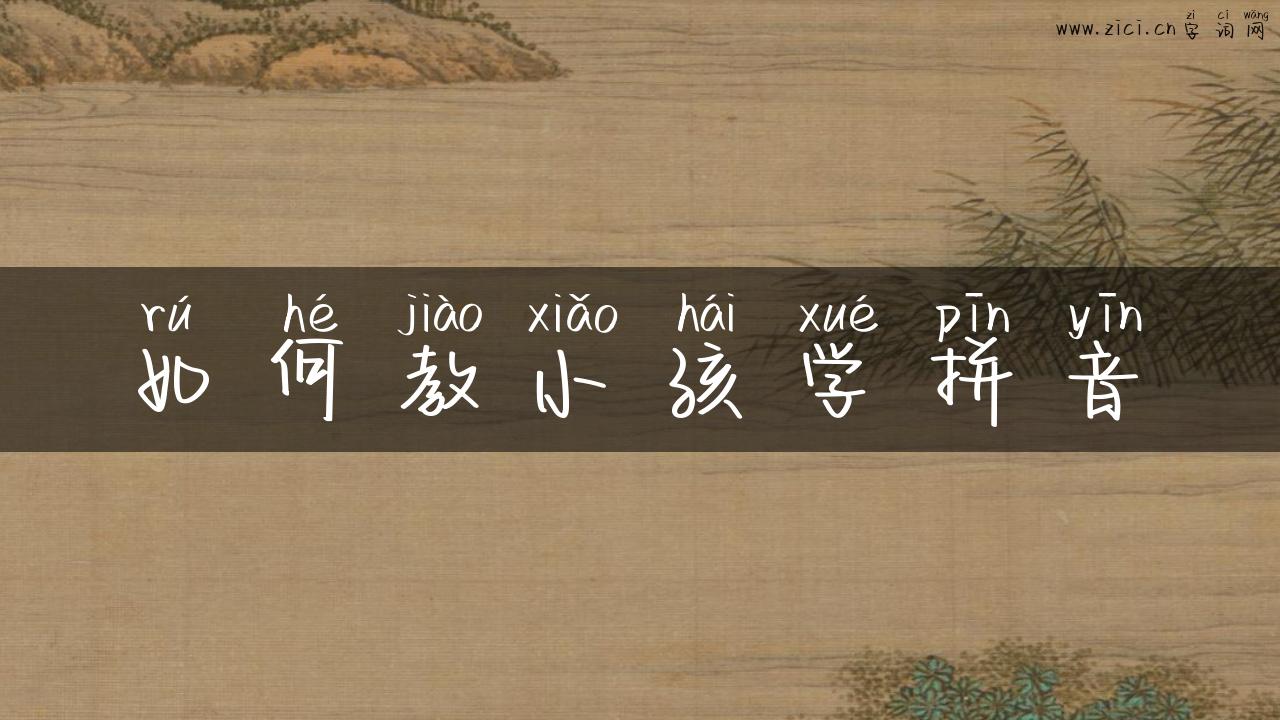 zì cí wǎng
www.zici.cn 字词网
rú hé jiào xiǎo hái xué pīn yīn
如何教小孩学拼音